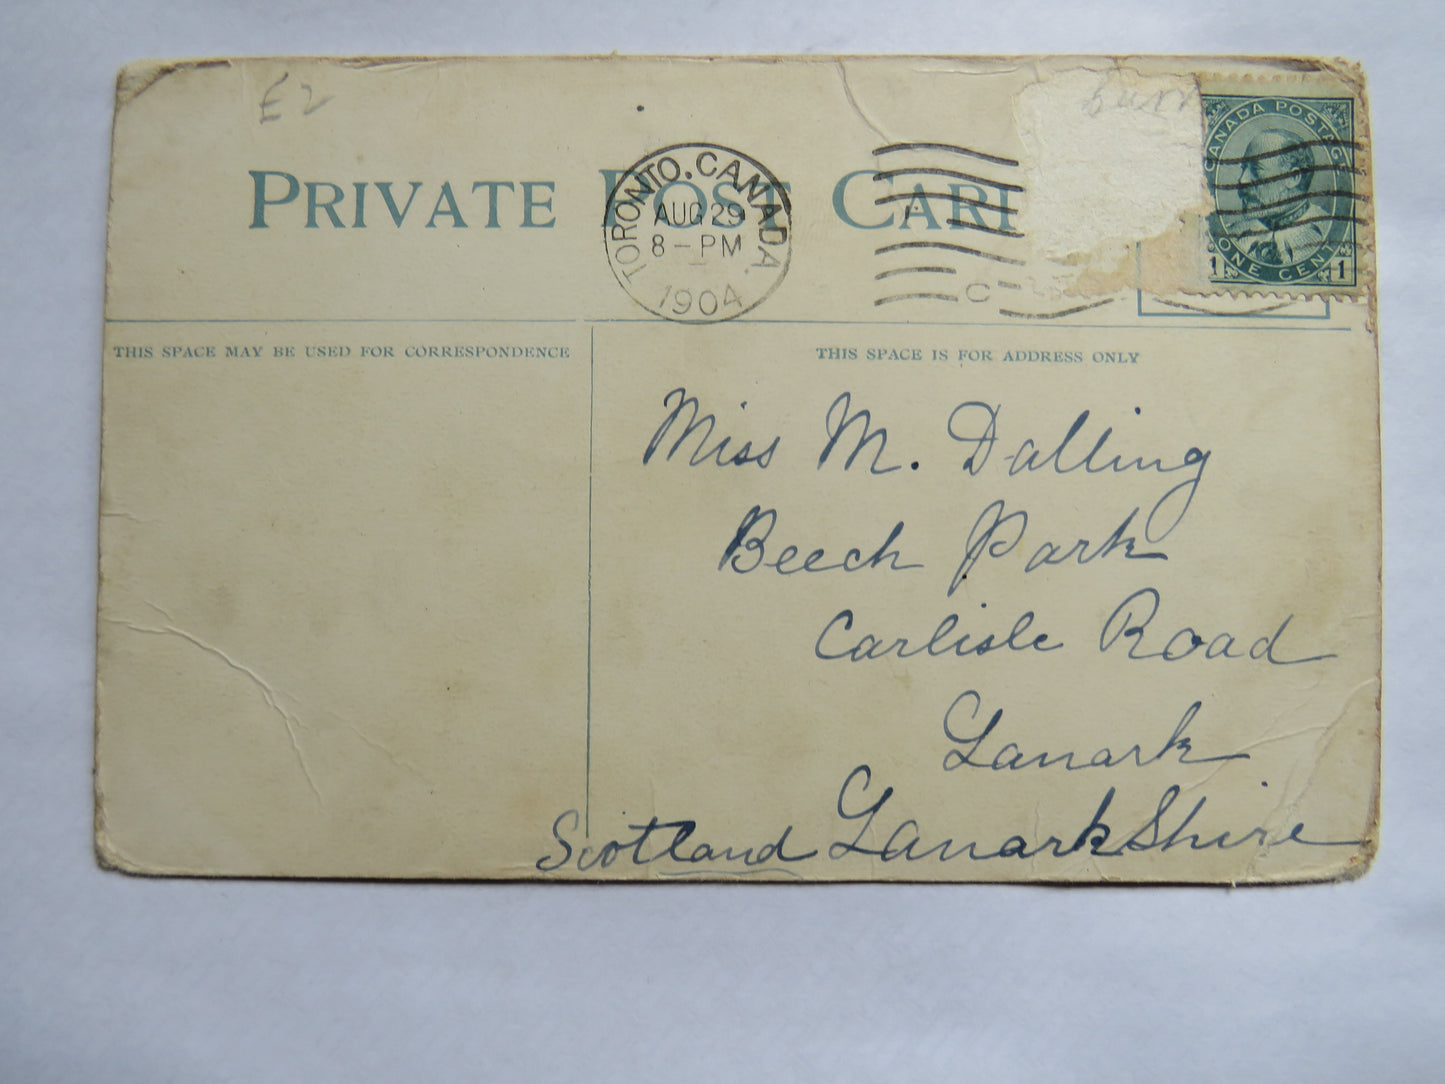 E2
PRIVATE POST CARD
TORONTO. CANADA.
AUG 29
8-PM
1904
C
CANADA POSTAGE
ONE CENT
1 1
THIS SPACE MAY BE USED FOR CORRESPONDENCE
THIS SPACE IS FOR ADDRESS ONLY
Miss M. Dalling
Beech Park
Carlisle Road
Lanark
Scotland LanarkShire